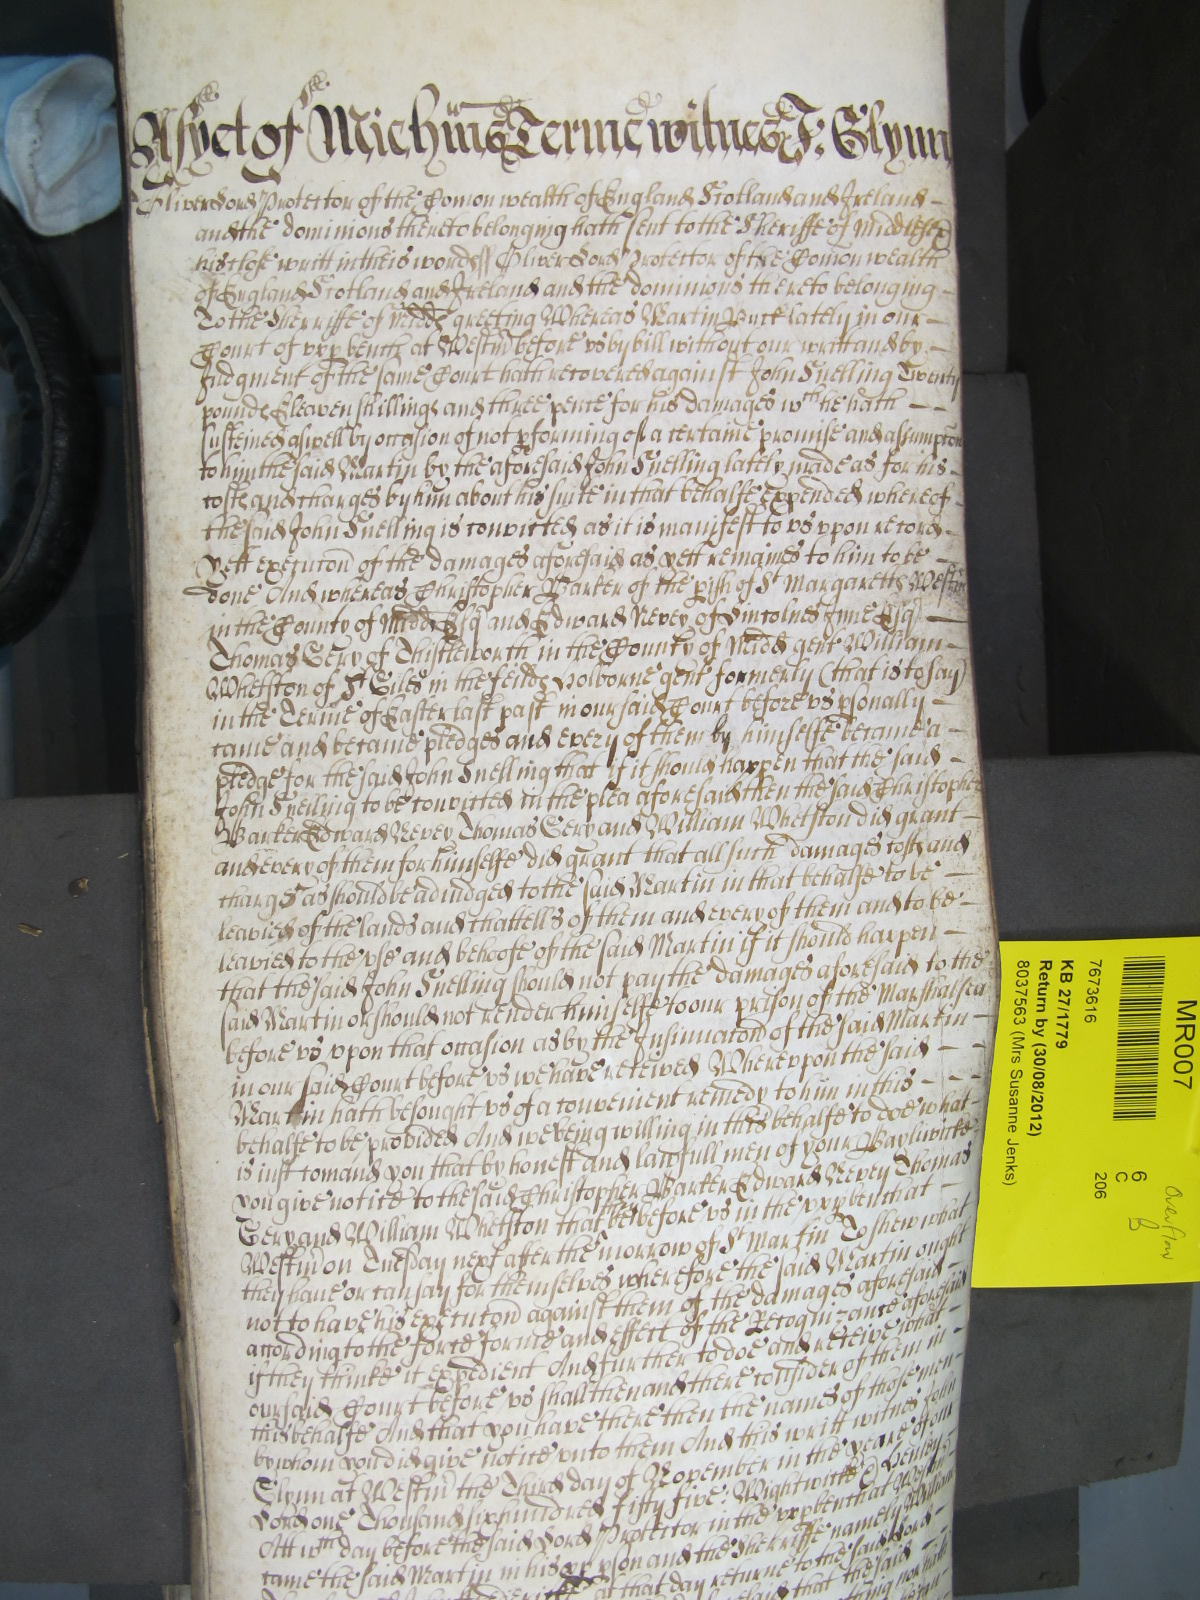 As yet of Michais Terme witnes J: Glynn
Oliver Lord Protector of the Comon wealth of England Scotland and Ireland
and the dominions thereto belonging hath sent to the Sheriffe of Middlesex
his close writt in theis words ss Oliver Lord Protector of the Comon wealth
of England Scotland and Ireland and the dominions thereto belonging
To the Sherriffe of Midd greeting Whereas Martin lately in our
Court of vpp bench at Westm before vs by bill without our writt and by
Judgment of the same Court hath recovered against John Snelling Twenty
pounds Eleaven shillings and three pence for his damages wch he hath
susteined aswell by occasion of not pforming of a certaine promise and assumpcon
to him the said Martin by the aforesaid John Snelling lately made as for his
costs and charges by him about his suite in that behalfe expended whereof
the said John Snelling is convicted as it is manifest to vs vpon record
yett execucon of the damages aforesaid as yett remaines to him to be
done And whereas Christopher Barker of the pish of St Margaretts Westm
in the County of Midd Esq and Edward Nevey of Lincolnes Inne Esq
Thomas Gery of Thistleworth in the County of Midd gent William
Whetston of St Giles in the feilds Holborne gent formerly (that is to say)
in the Terme of Easter last past in our said Court before vs psonally
came and became pledges and every of them by himselfe became a
pledge for the said John Snelling that if it should happen that the said
John Snelling to be convicted in the plea aforesaid then the said Christopher
Barker Edward Nevey Thomas Gery and William Whetston did grant
and every of them for himselfe did grant that all such damages costs and
charges as should be adiudged to the said Martin in that behalfe to be
leavied of the lands and chattells of them and every of them and to be
leavied to the vse and behoofe of the said Martin if it should happen
that the said John Snelling should not pay the damages aforesaid to the
said Martin or should not render himselfe to our prison of the Marshalsea
before vs vpon that occasion as by the Insinuacon of the said Martin
in our said Court before vs we have received Wherevpon the said
Martin hath besought vs of a convenient remedy to him in this
behalfe to be provided And we being willing in this behalfe to doe what
is iust comand you that by honest and lawfull men of your Bayliwicke
you give notice to the said Christopher Barker Edward Nevey Thomas
Gery and William Whetston that before vs in the vpp bench at
Westm on Tuesday next after the morrow of St Martin To shew what
they have or can say for themselves wherefore the said Martin ought
not to have his execucon against them of the damages aforesaid
according to the force forme and effect of the Recognizance aforesaid
if they thinke it expedient And further to doe and receive what
our said Court before vs shall then and there consider of them in
this behalfe And that you have there then the names of those men
by whom you did give notice vnto them And this writt witnes John
Glynn at Westm the Third day of November in the yeare of our
Lord one Thousand six hundred fifty five: Wightwicke Henley
Att wch day before the said Lord Protector in the vpp bench at Westm
came the said Martin in his pson and the Sherriffe namely William
at that day returne to the said Lord
that the said
MR007
7673616
KB 27/1779
Return by (30/08/2012)
8037563 (Mrs Susanne Jenks)
6
C
206
Overflow
B